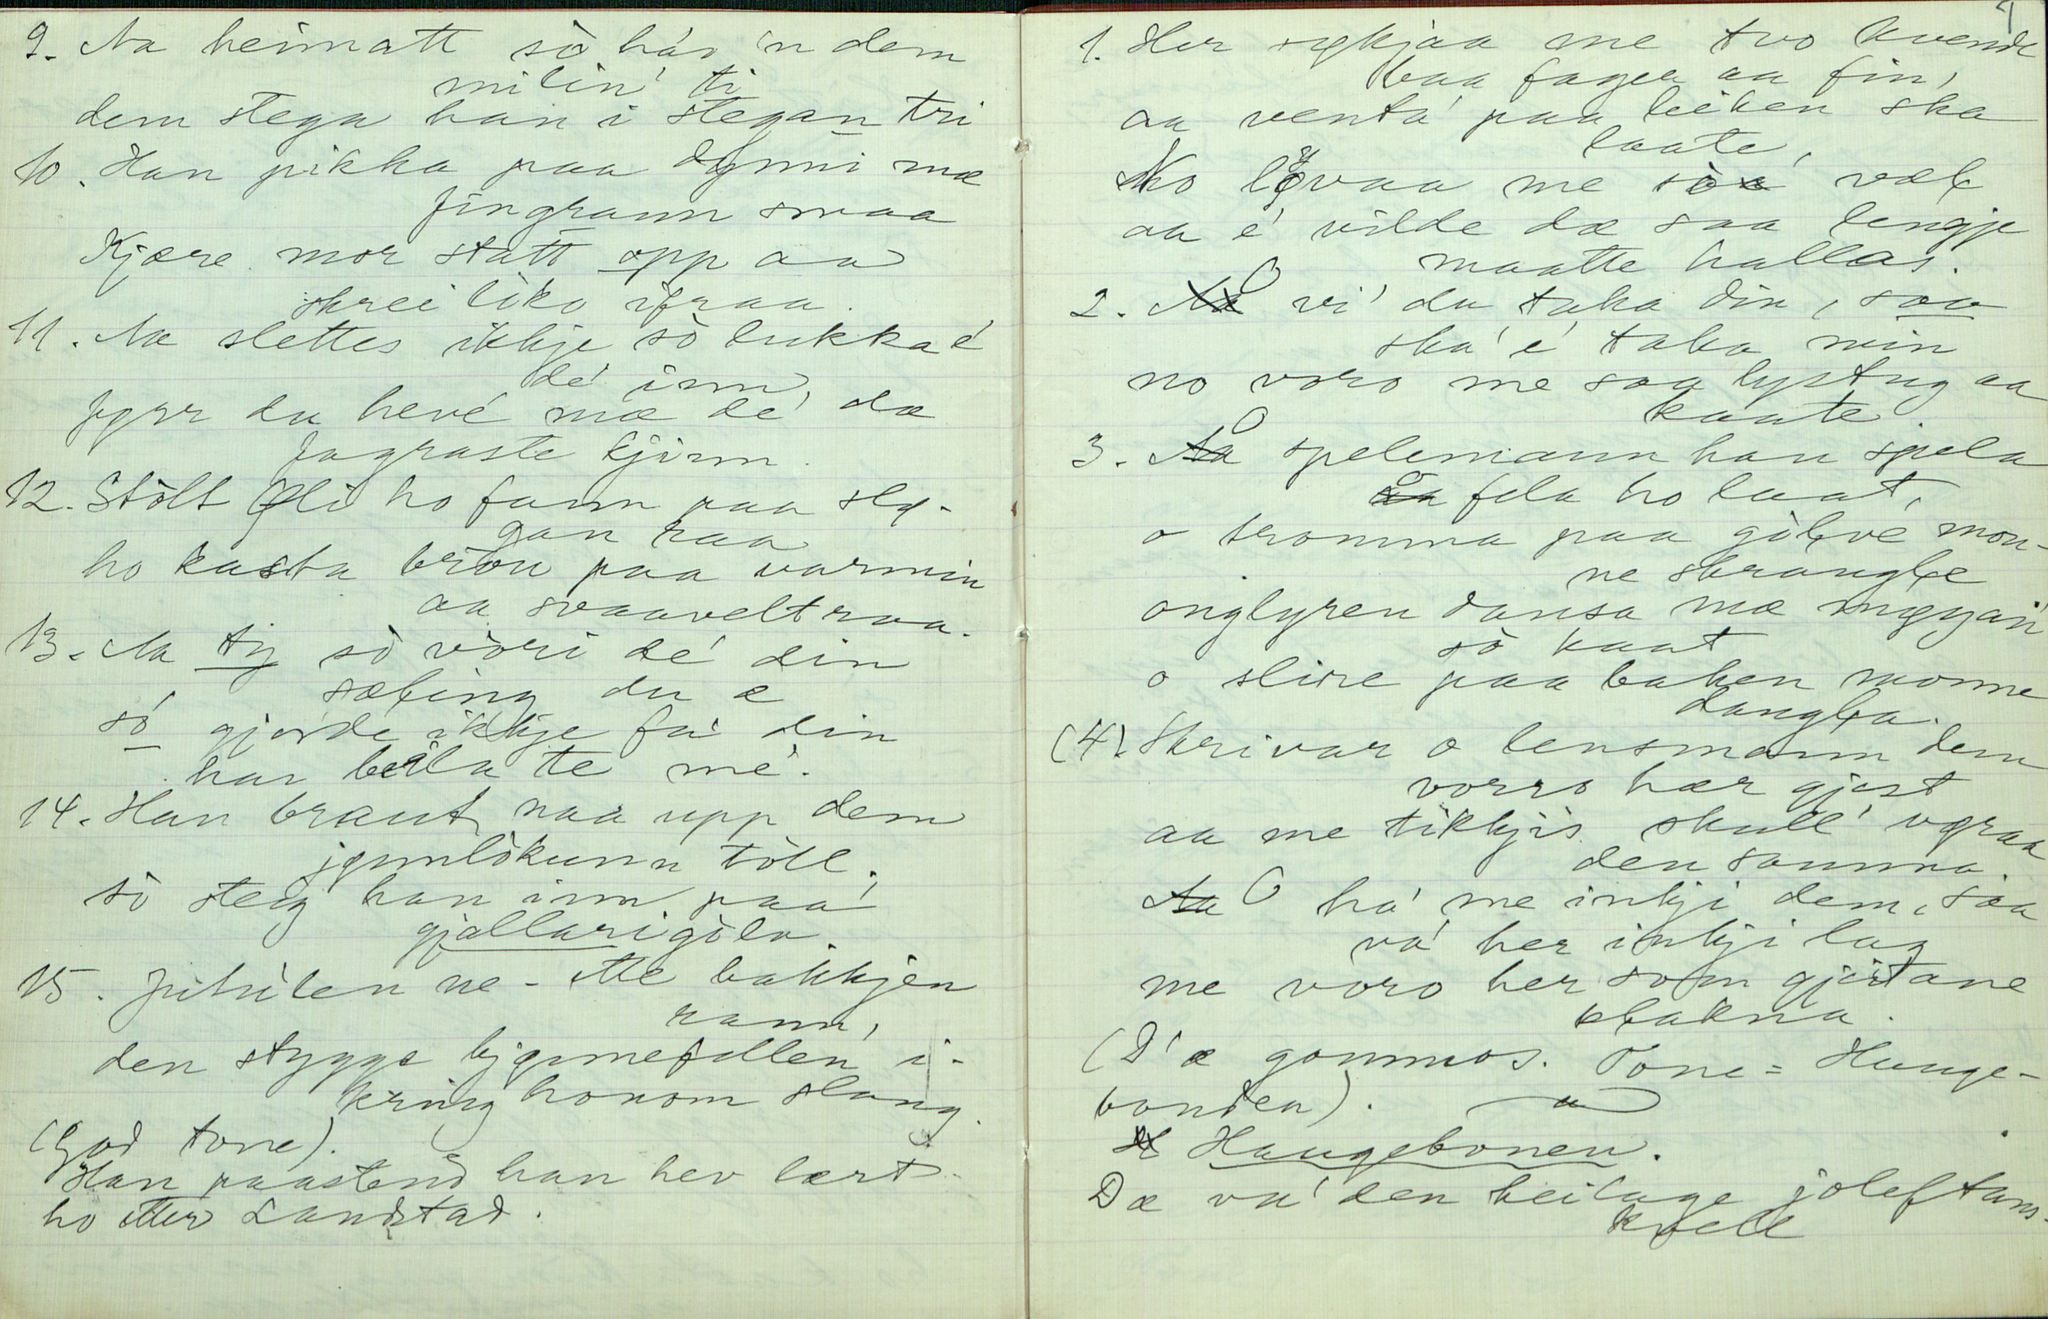 9. Aa heimatt sò hás 'n dem
milin' ti
dem stega han i stegan tri
10. Han pikka paa dynni mæ
fingrann smaa
Kjære mor statt opp aa
skrei lòko ifraa.
11. Aa slettes ikkje sò lukka é
dé inn,
fyrr du hevé mæ dé dæ
fagraste kjinn.
12. Stòlt Øli ho fann paa slø-
gan raa
ho kasta bròu paa varmin
aa svaaveltraa.
13. Aa tij sò vòri dé din
sæling du æ
sò gjorde ikkje fa' din
han beila te mé.
14. Han braut naa upp dem
jønnlòkunn tòll,
sò steig han inn paa
gjallarigòlv.
15. Juliulen ne - Me bakkjen
rann,
den stygge bjønnefellen i-
kring honom slang.
(God tone).
Han paastend han hev lært
ho etter Landstad.
1. Her sykjaa me tvo kvende
baa fager aa fin,
aa venta' paa leiken ska
laate,
No løvaa me sòa væl
aa é vilde dæ saa lengje
maatte hallas.
2. O vi' du taka din, saa
ska' é taka min
no voro me saa lystug aa
kaate
3. O spelemann han spela
o fela ho laat,
o tromma paa gòlvé mon-
ne skrangle
onglyren dansa mæ møyan'
sò kaat
o slire paa baken monne
dangla.
(4). Skrivar o lensmann dem
vorro hær gjest
aa me tikkjis skull' vøraa
den samma
O ha' me inkji dem, saa
va' her inkji lag
me voro her som gjeitane
klakna.
(D'æ gommos. Tone = Hauge-
bonden).
Haugebonen.
Dæ va' den heilage joleftans-
kvell